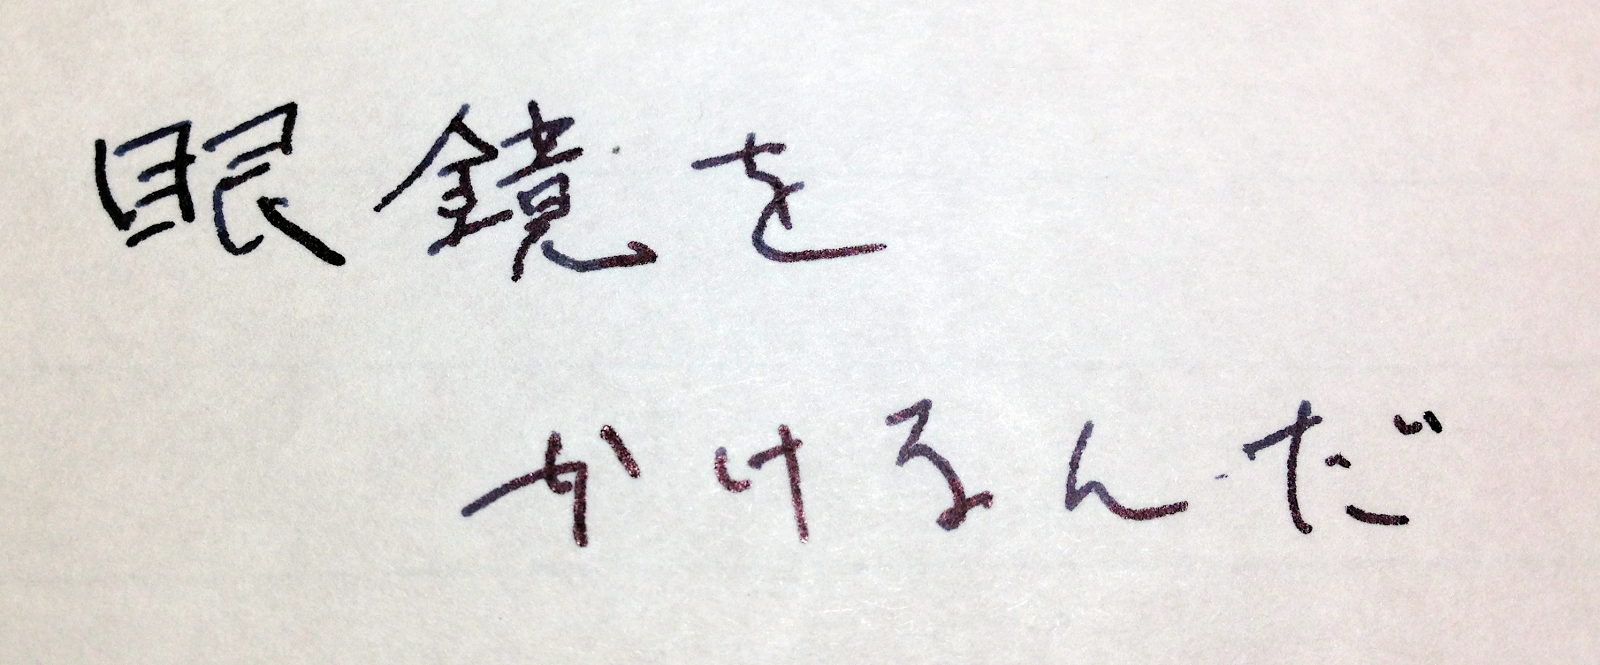 眼鏡を
かけるんだ